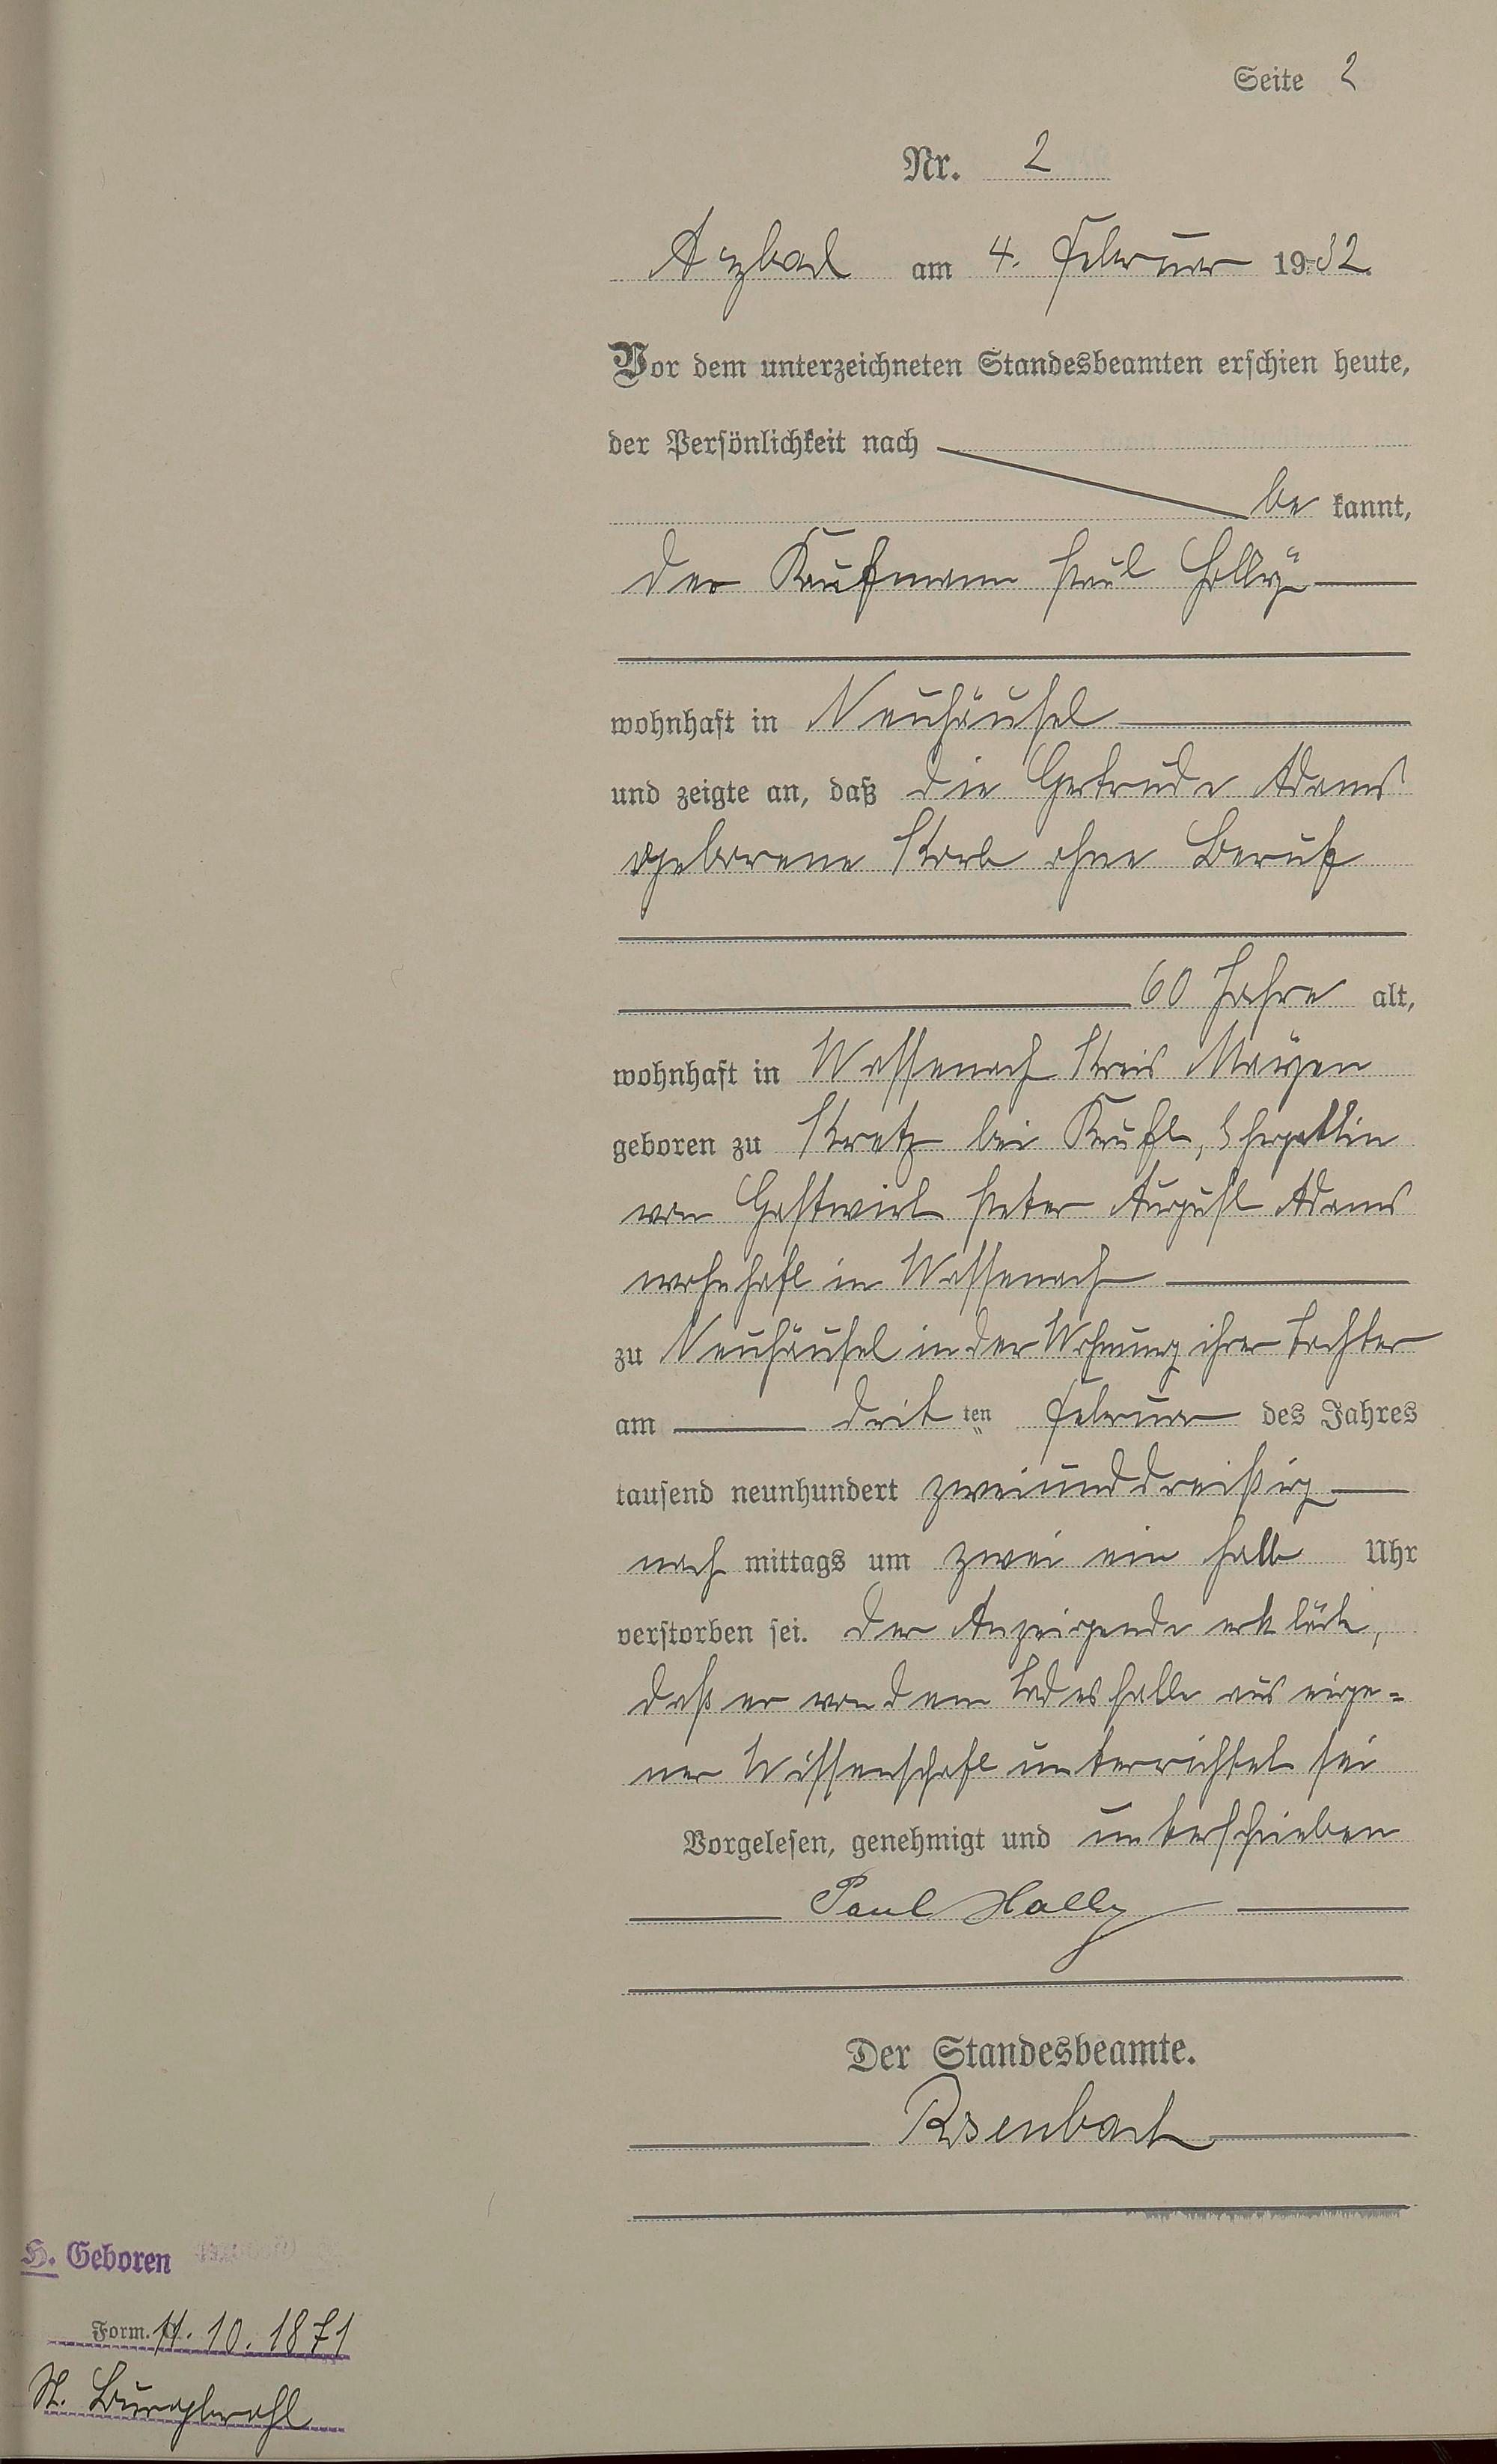 Seite 2
Nr. 2
Arzbach am 4. Februar 1932.
Vor dem unterzeichneten Standesbeamten erschien heute,
der Persönlichkeit nach
be kannt,
der Kaufmann Paul Hallÿ
wohnhaft in Neuhäusel
und zeigte an, daß die Gertrude Adams
geborene Korb ohne Beruf
60 Jahre alt,
wohnhaft in Wassenach Kreis Mayen
geboren zu Kretz bei Kruft, Ehegattin
von Gastwirt Peter August Adams
wohnhaft in Wassenach
zu Neuhäusel in der Wohnung ihrer Tochter
am drit ten Februar des Jahres
tausend neunhundert zweiunddreißig
nach mittags um zwei ein halb Uhr
verstorben sei. Der Anzeigende erklärte,
daß er von dem Todesfalle aus eige=
ner Wissenschaft unterrichtet sei
Vorgelesen, genehmigt und unterschrieben
Paul Hally
Der Standesbeamte.
H. Geboren
Form. 11. 10. 1871
St. Burgbrohl